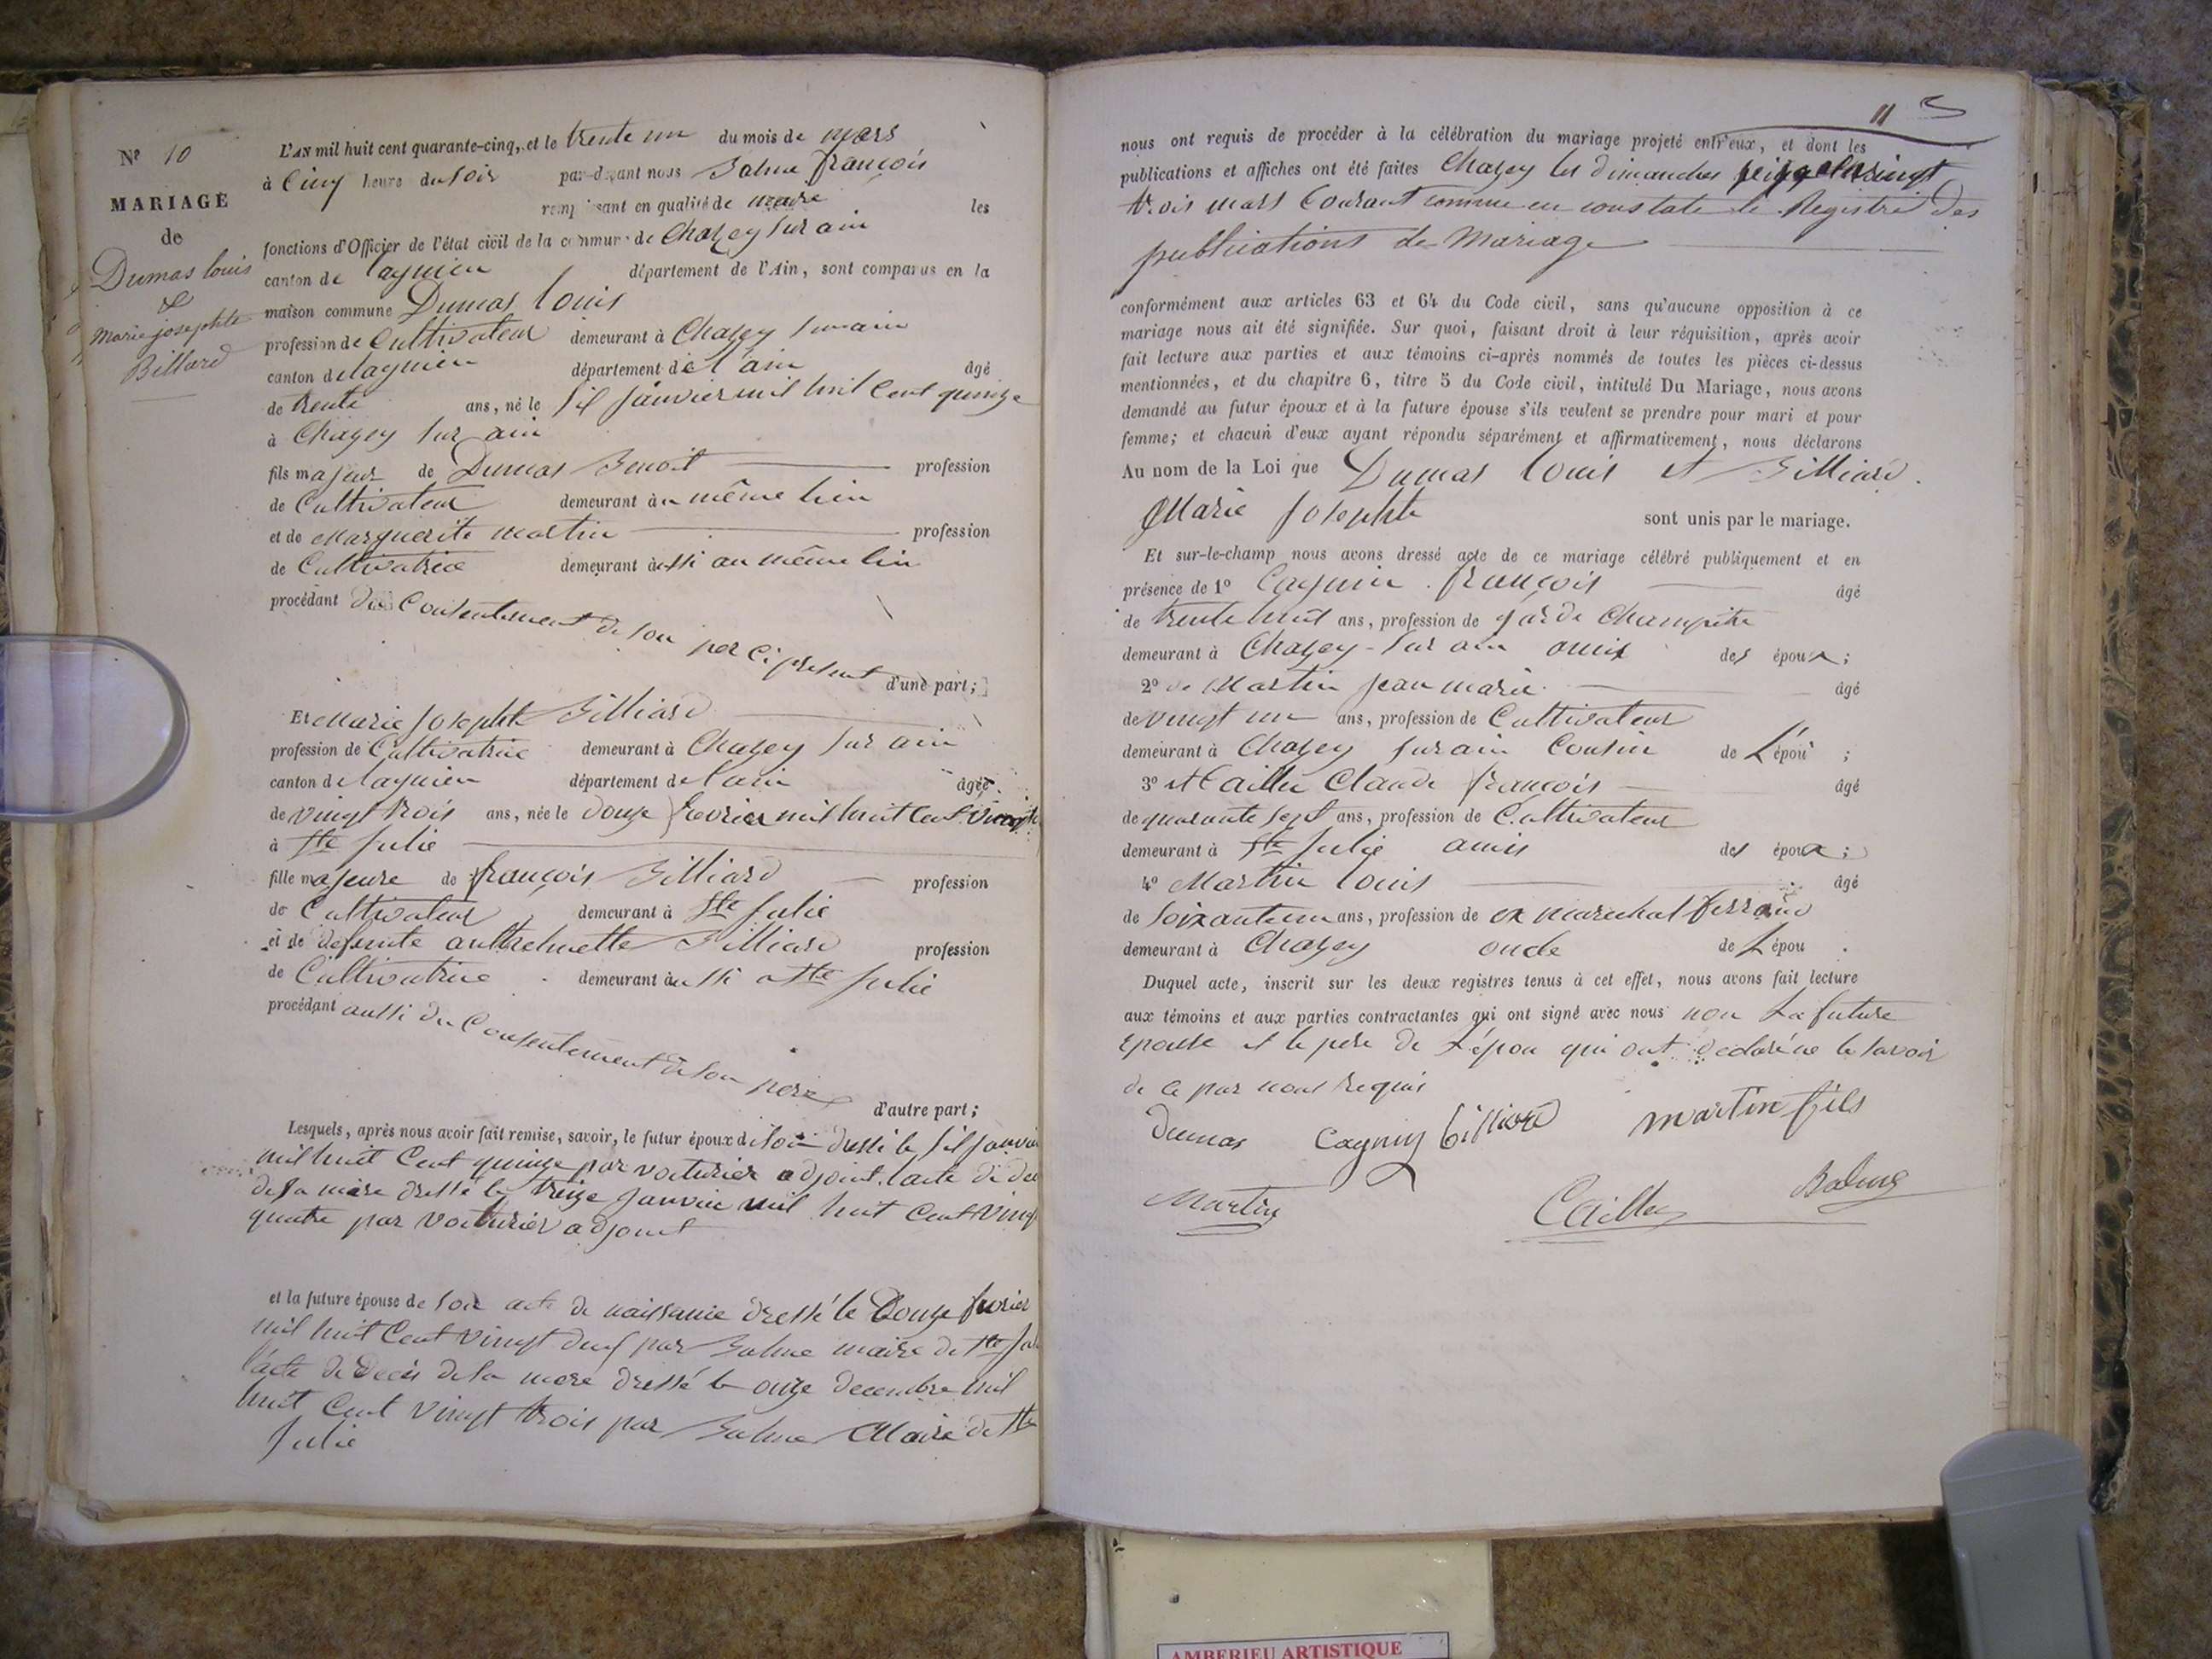 Nº 10
MARIAGE
de
Dumas louis
&
Marie josephte
Billard
L'AN mil huit cent quarante-cinq, et le trente un du mois de mars
à Cinq heure du soir par-devant nous Balme françois
remplissant en qualité de maire les
fonctions d'Officier de l'état civil de la commune de Chazey sur ain
canton de lagnieu département de l'Ain, sont comparus en la
maison commune Dumas louis
profession de Cultivateur demeurant à Chazey sur ain
canton de lagnieu département de l'ain âgé
de trente ans, né le six janvier mil huit Cent quinze
à Chazey sur ain
fils majeur de Dumas Benoit profession
de Cultivateur demeurant au même lieu
et de Marguerite martin profession
de Cultivatrice demeurant aussi au même lieu
procédant du Consentement de son per Ci present
d'une part;
Et Marie Josephte Billiard
profession de Cultivatrice demeurant à Chazey sur ain
canton de lagnieu département de l'ain âgée
de vingt trois ans, née le douze fevrier mil huit Cent vingt
à Ste Julie
fille majeure de françois Billiard profession
de Cultivateur demeurant à Ste Julie
et de defunte anthelmette Billiard profession
de Cultivatrice demeurant aussi a Ste Julie
procédant aussi du Consentement de son pere
d'autre part;
Lesquels, après nous avoir fait remise, savoir, le futur époux de son dressé le six janvier
mil huit Cent quinze par voiturier adjoint. l'acte de dec
de sa mère dressé le treize janvier mil huit Cent Ving
quatre par voiturier adjoint
et la future épouse de son acte de naissance dressé le Douze fevrier
mil huit Cent vingt deux par Balme maire de Ste Ju
l'acte de Décès de sa mere dressé le onze decembre mil
huit Cent vingt trois par Balme Maire de Ste
Julie
11
nous ont requis de procéder à la célébration du mariage projeté entr'eux, et dont les
publications et affiches ont été faites Chazey les dimanches seize et vingt
trois mars Courant comme en constate le Registre des
publications de Mariage
conformément aux articles 63 et 64 du Code civil, sans qu'aucune opposition à ce
mariage nous ait été signifiée. Sur quoi, faisant droit à leur réquisition, après avoir
fait lecture aux parties et aux témoins ci-après nommés de toutes les pièces ci-dessus
mentionnées, et du chapitre 6, titre 5 du Code civil, intitulé Du Mariage, nous avons
demandé au futur époux et à la future épouse s'ils veulent se prendre pour mari et pour
femme; et chacun d'eux ayant répondu séparément et affirmativement, nous déclarons
Au nom de la Loi que Dumas louis et Billiard
Marie Josephte sont unis par le mariage.
Et sur-le-champ nous avons dressé acte de ce mariage célébré publiquement et en
présence de 1º Cagnin françois âgé
de trente huit ans, profession de garde Champetre
demeurant à Chazey-sur ain amis des époux;
2º de Martin jean marie âgé
de vingt un ans, profession de Cultivateur
demeurant à Chazey sur ain Cousin de L'épou ;
3º et Cailler Claude françois âgé
de quarante sept ans, profession de Cultivateur
demeurant à Ste Julie amis des époux;
4º Martin louis âgé
de soixante un ans, profession de ex marechal ferrand
demeurant à Chazey oncle de L'épou .
Duquel acte, inscrit sur les deux registres tenus à cet effet, nous avons fait lecture
aux témoins et aux parties contractantes qui ont signé avec nous non La future
Epouse et le pere de L'épou qui ont déclaré ne le savoir
de ce par nous requis
Dumas Cagnin billiard martin fils
Martin Cailler Balme
AMBERIEU ARTISTIQUE